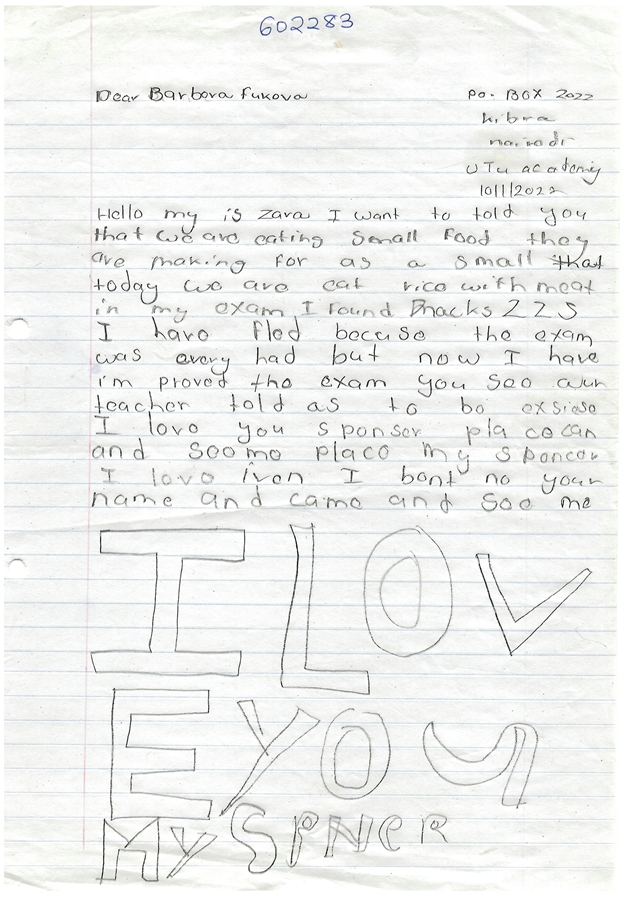 602283
Dear Barbora fukova
po. BOX 2022
kibra
nairodi
UTu academy
10/1/2022
Hello my is zara I want to told you
that we are eating small food they
are making for as a small that
today we are eat rice with meat
in my exam I round Dhacks 225
I have fled becuse the exam
was every had but now I have
i'm proved the exam you soo aur
teacher told as to bo exsiese
I lovo you sponser pla cocan
and soomo placo my sponcor
I lovo iven I bont no your
name and camo and soo me
I LOV
E YOU
MY SPNCR